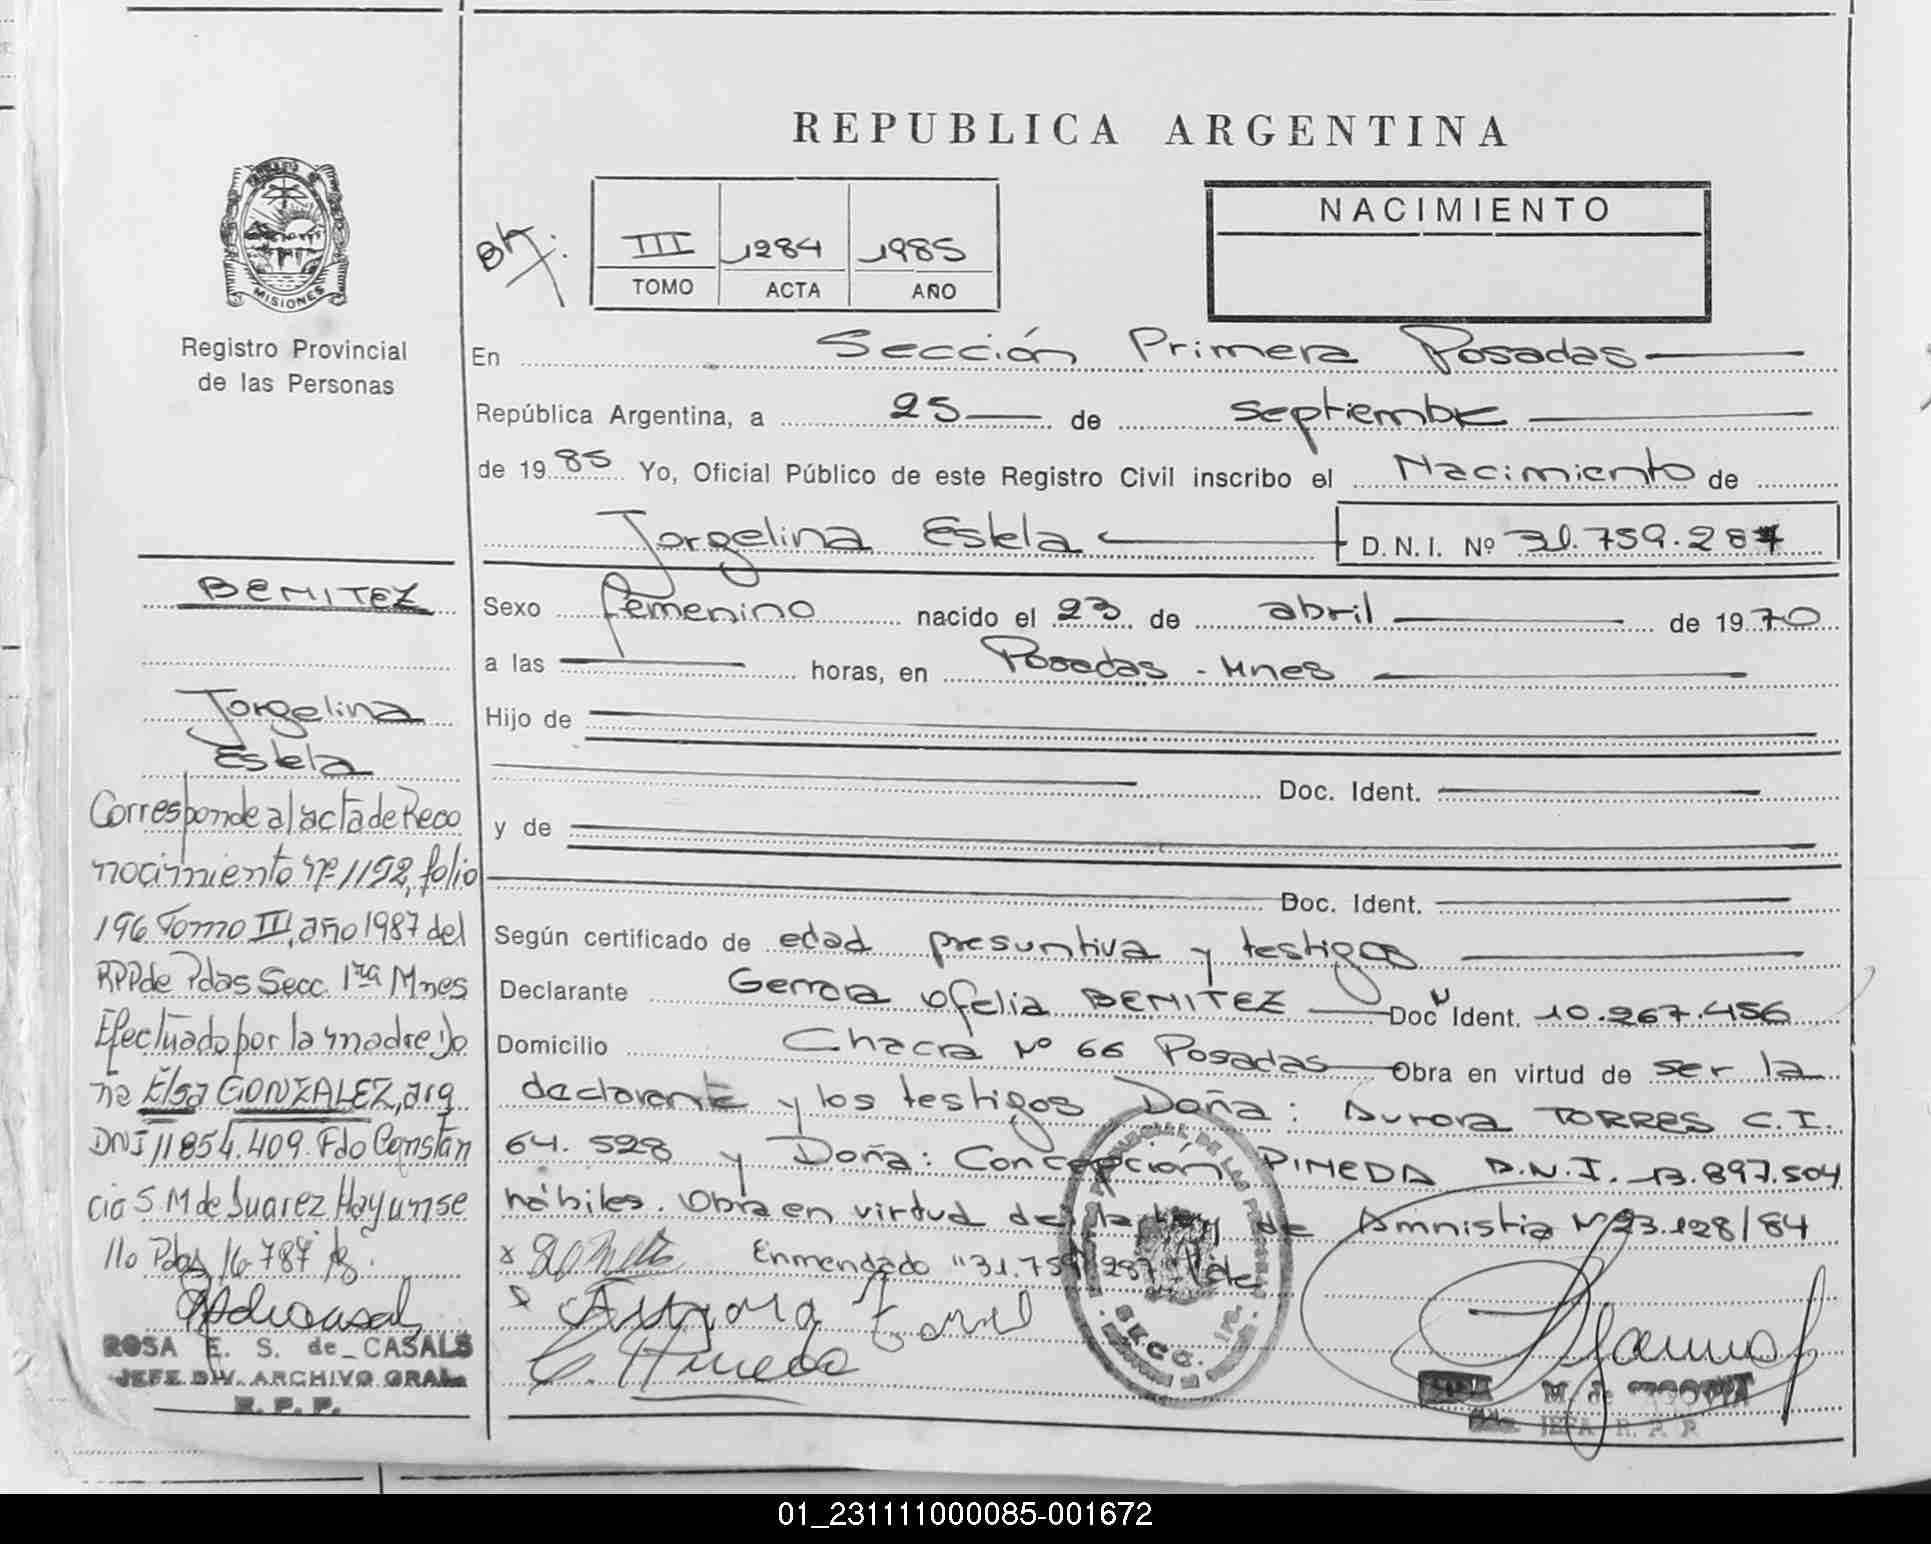 REPUBLICA ARGENTINA
NACIMIENTO
III 1284 1985
TOMO ACTA AÑO
MISIONES
Registro Provincial
de las Personas
En Sección Primera Posadas
República Argentina, a 25 de septiembre
de 1985 Yo, Oficial Público de este Registro Civil inscribo el Nacimiento de
Jorgelina Estela D.N.I. Nº 31.759.287
Sexo femenino nacido el 23 de abril de 1970
a las horas, en Posadas - Mnes
Hijo de
Doc. Ident.
y de
Doc. Ident.
Según certificado de edad presuntiva y testigos
Declarante Ofelia BENITEZ Doc Ident. 10.267.456
Domicilio Chacra Nº 66 Posadas Obra en virtud de ser la
declarante y los testigos Doña: Aurora TORRES C.I.
64.528 y Doña: Concepción PINEDA D.N.I. 13.897.504
hábiles. Obra en virtud de la ley de Amnistia Nº 23.128/84
Enmendado "31.759.287" Vale
M. de
JEFA R. P. P.
BENITEZ
Jorgelina
Estela
Corresponde al acta de Reco
nocimiento nº 1192, folio
196 Tomo III, año 1987 del
RPP de Pdas Secc. 1ra Mnes
Efectuado por la madre Do
ña Elsa GONZALEZ, arg
DNI 11854.409. Fdo Constan
cia S M de Suarez Hay un se
llo Pdas
ROSA E. S. de CASALS
JEFE DIV. ARCHIVO GRAL.
R. P. P.
01_231111000085-001672